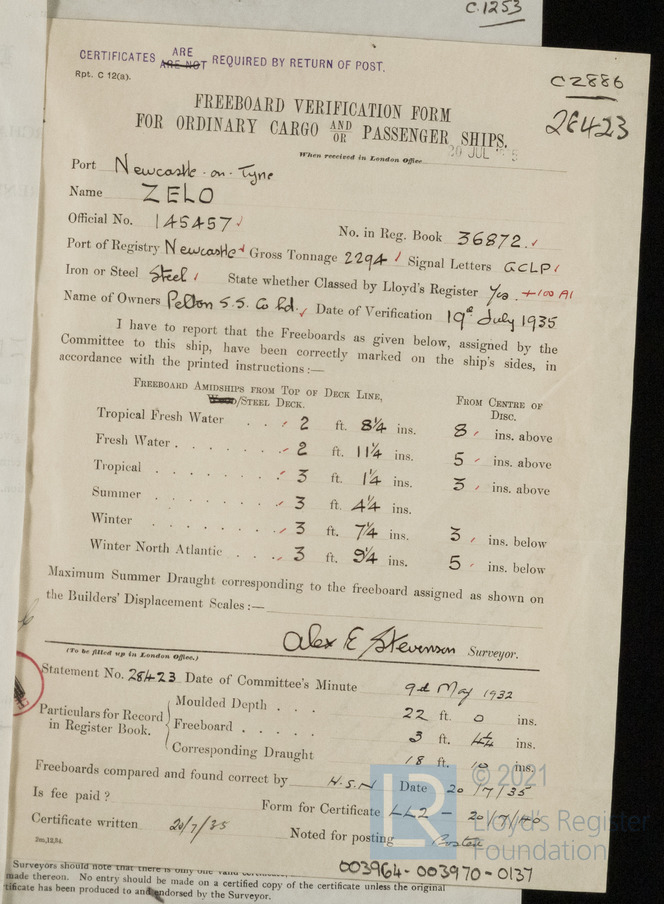 C.1253
CERTIFICATES ARE
ARE NOT REQUIRED BY RETURN OF POST.
Rpt. C 12(a).
C2886
28423
FREEBOARD VERIFICATION FORM
FOR ORDINARY CARGO AND OR PASSENGER SHIPS.
When received in London Office 20 JUL
Port Newcastle-on-Tyne
Name ZELO
Official No. 145457
No. in Reg. Book 36872.
Port of Registry Newcastle Gross Tonnage 2294 Signal Letters GCLP
Iron or Steel Steel State whether Classed by Lloyd's Register Yes. +100 A1
Name of Owners Pelton S.S. Co Ld. Date of Verification 19th July 1935
I have to report that the Freeboards as given below, assigned by the
Committee to this ship, have been correctly marked on the ship's sides, in
accordance with the printed instructions:—
FREEBOARD AMIDSHIPS FROM TOP OF DECK LINE,
WOOD/STEEL DECK.
FROM CENTRE OF
DISC.
Tropical Fresh Water . . . 2 ft. 8¼ ins. 8 ins. above
Fresh Water . . . . . . . 2 ft. 11¼ ins. 5 ins. above
Tropical . . . . . . . 3 ft. 1¼ ins. 3 ins. above
Summer . . . . . . . 3 ft. 4¼ ins.
Winter . . . . . . . 3 ft. 7¼ ins. 3 ins. below
Winter North Atlantic . . . 3 ft. 9¼ ins. 5 ins. below
Maximum Summer Draught corresponding to the freeboard assigned as shown on
the Builders' Displacement Scales:—
Alex E Stevenson Surveyor.
(To be filled up in London Office.)
Statement No. 28423 Date of Committee's Minute 9th May 1932
Particulars for Record
in Register Book.
Moulded Depth . . . 22 ft. 0 ins.
Freeboard . . . . . 3 ft. 4¼ ins.
Corresponding Draught 18 ft. 10 ins.
Freeboards compared and found correct by H.S.N Date 20/7/35
Is fee paid?
Form for Certificate LL2 - 20/7/40
Certificate written 20/7/35
Noted for posting Posted
2m,12,34.
LR
© 2021
Lloyd's Register
Foundation
003964-003970-0137
Surveyors should note that there is only one valid certificate,
made thereon. No entry should be made on a certified copy of the certificate unless the original
tificate has been produced to and endorsed by the Surveyor.